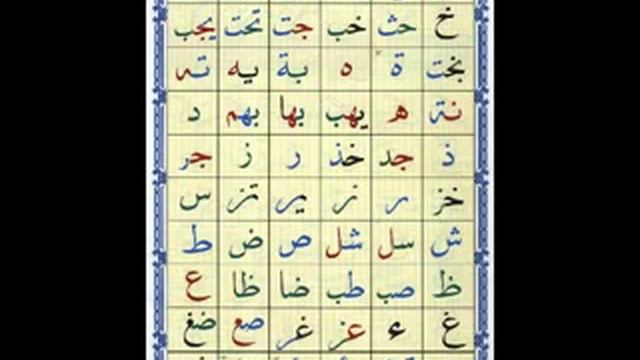 خ حث خب جت تحت يجب
بخت ة ه بة يه ته
نة ه يهب بها بهم د
ذ جد خذ ر ز جر
خز ر نر یر تز س
ش سل شل ص ض ط
ظ صب طب ضا ظا ع
غ ء عز غر صع ضغ